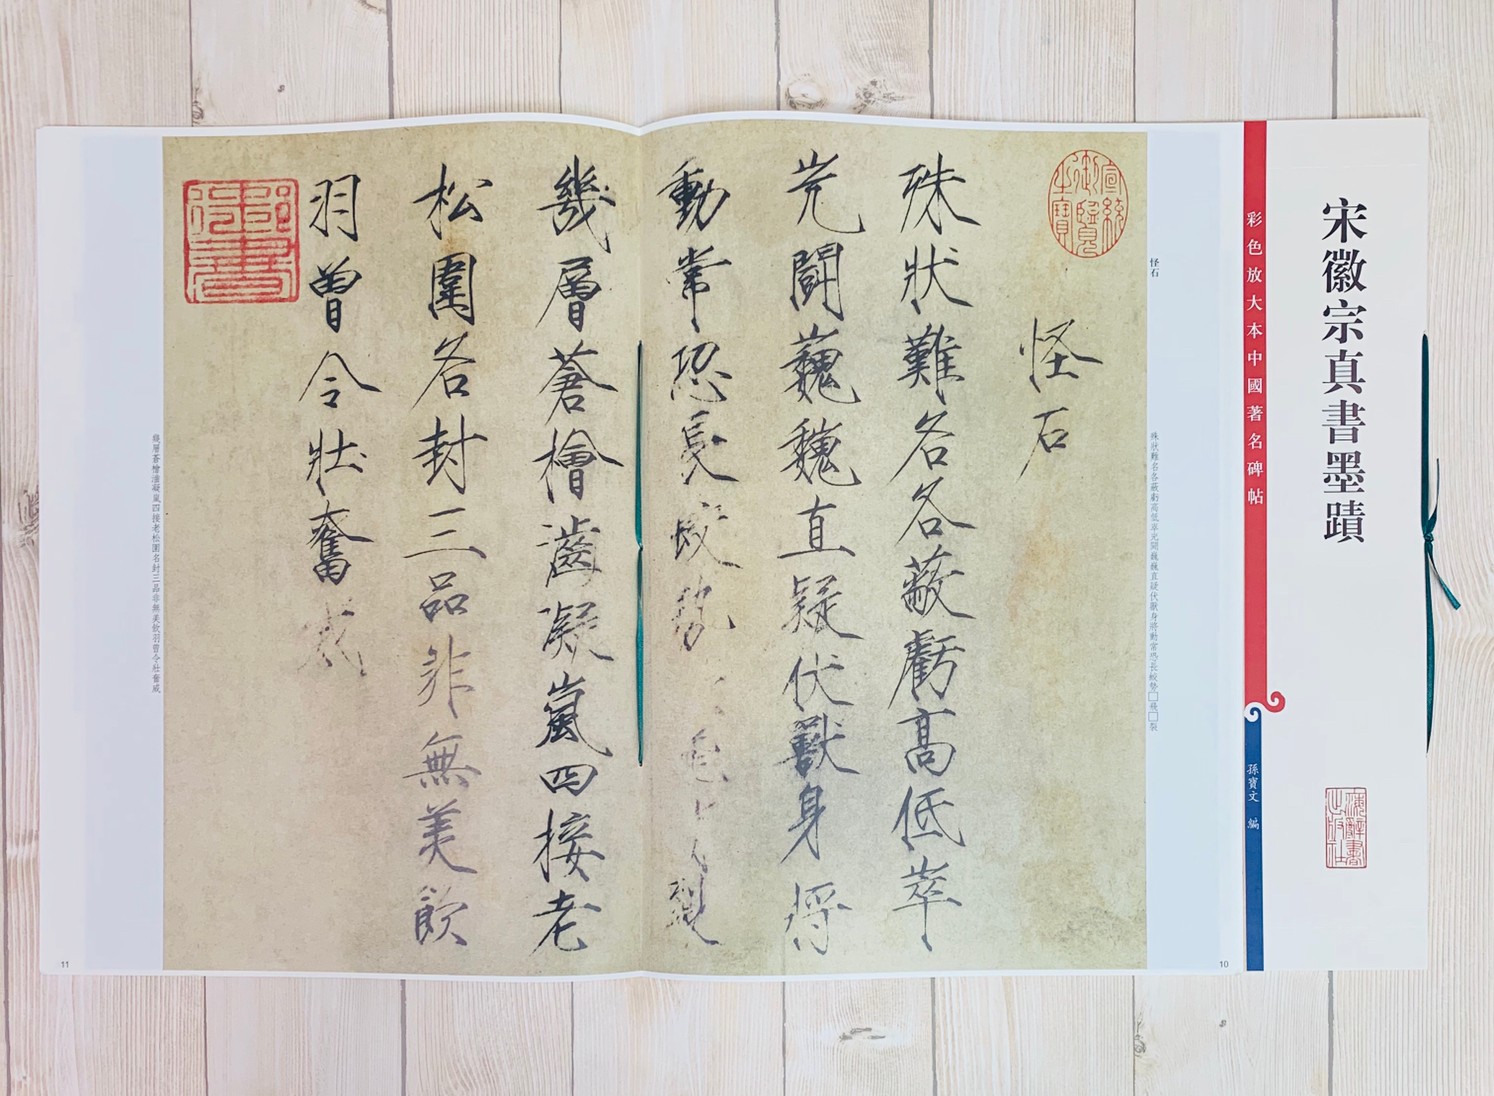 宋徽宗真書墨蹟
彩色放大本中國著名碑帖
孫寶文 編
怪石
殊狀難名各蔽虧高低崒兀鬪巍巍直疑伏獸身將動常恐長蛟勢□飛□裂
宣統御覽之寶
怪石
殊狀難名各蔽虧高低崒
兀鬪巍巍直疑伏獸身将
動常恐長蛟勢 裂
幾層蒼檜濇凝嵐四接老
松圍名封三品非無美飲
羽曾令壯奮威
御書
幾層蒼檜濇凝嵐四接老松圍名封三品非無美飲羽曾令壯奮威
10
11